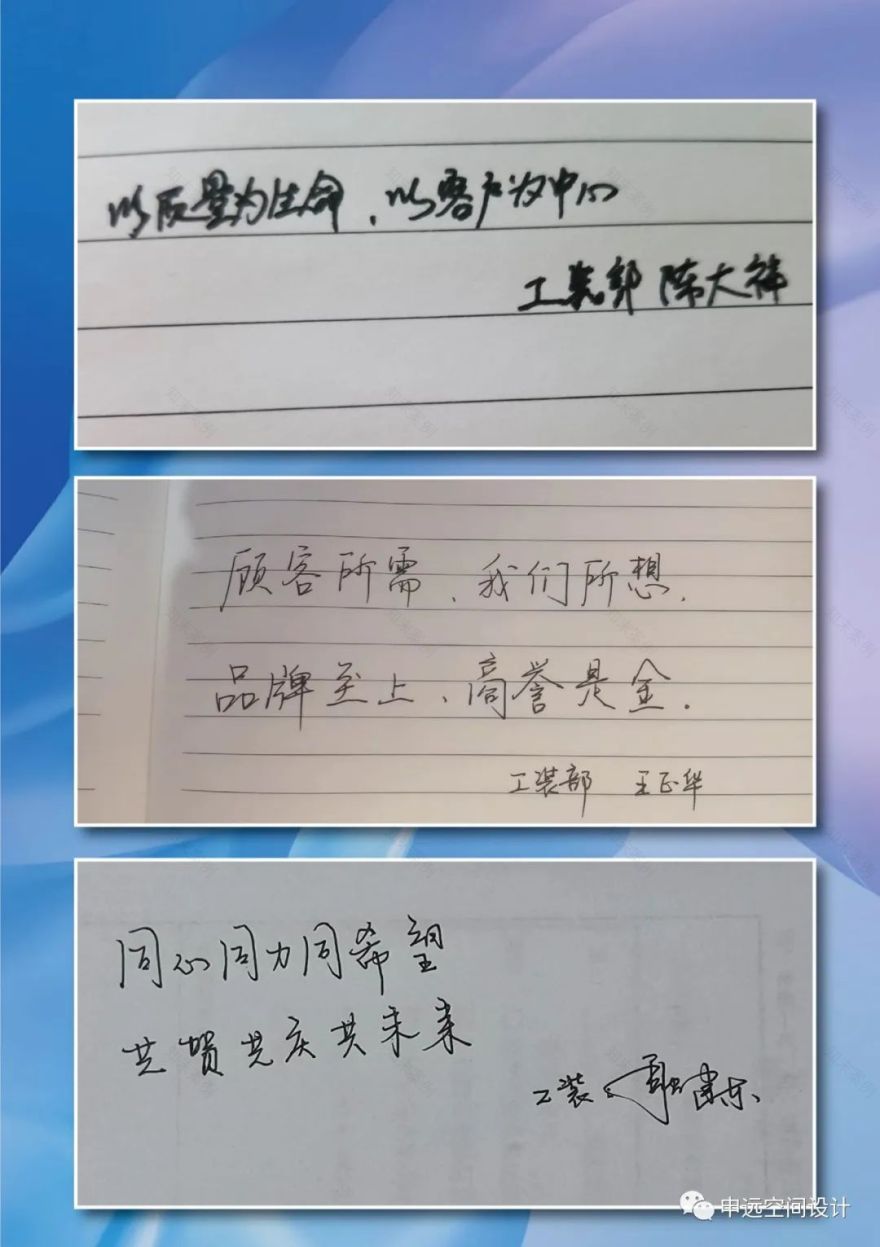 以质量为生命，以客户为中心
工装部 陈大祥
顾客所需，我们所想，
品牌至上，高誉是金.
工装部 王正华
同心同力同希望
共贺共庆共未来
工装
申远空间设计
知末案例